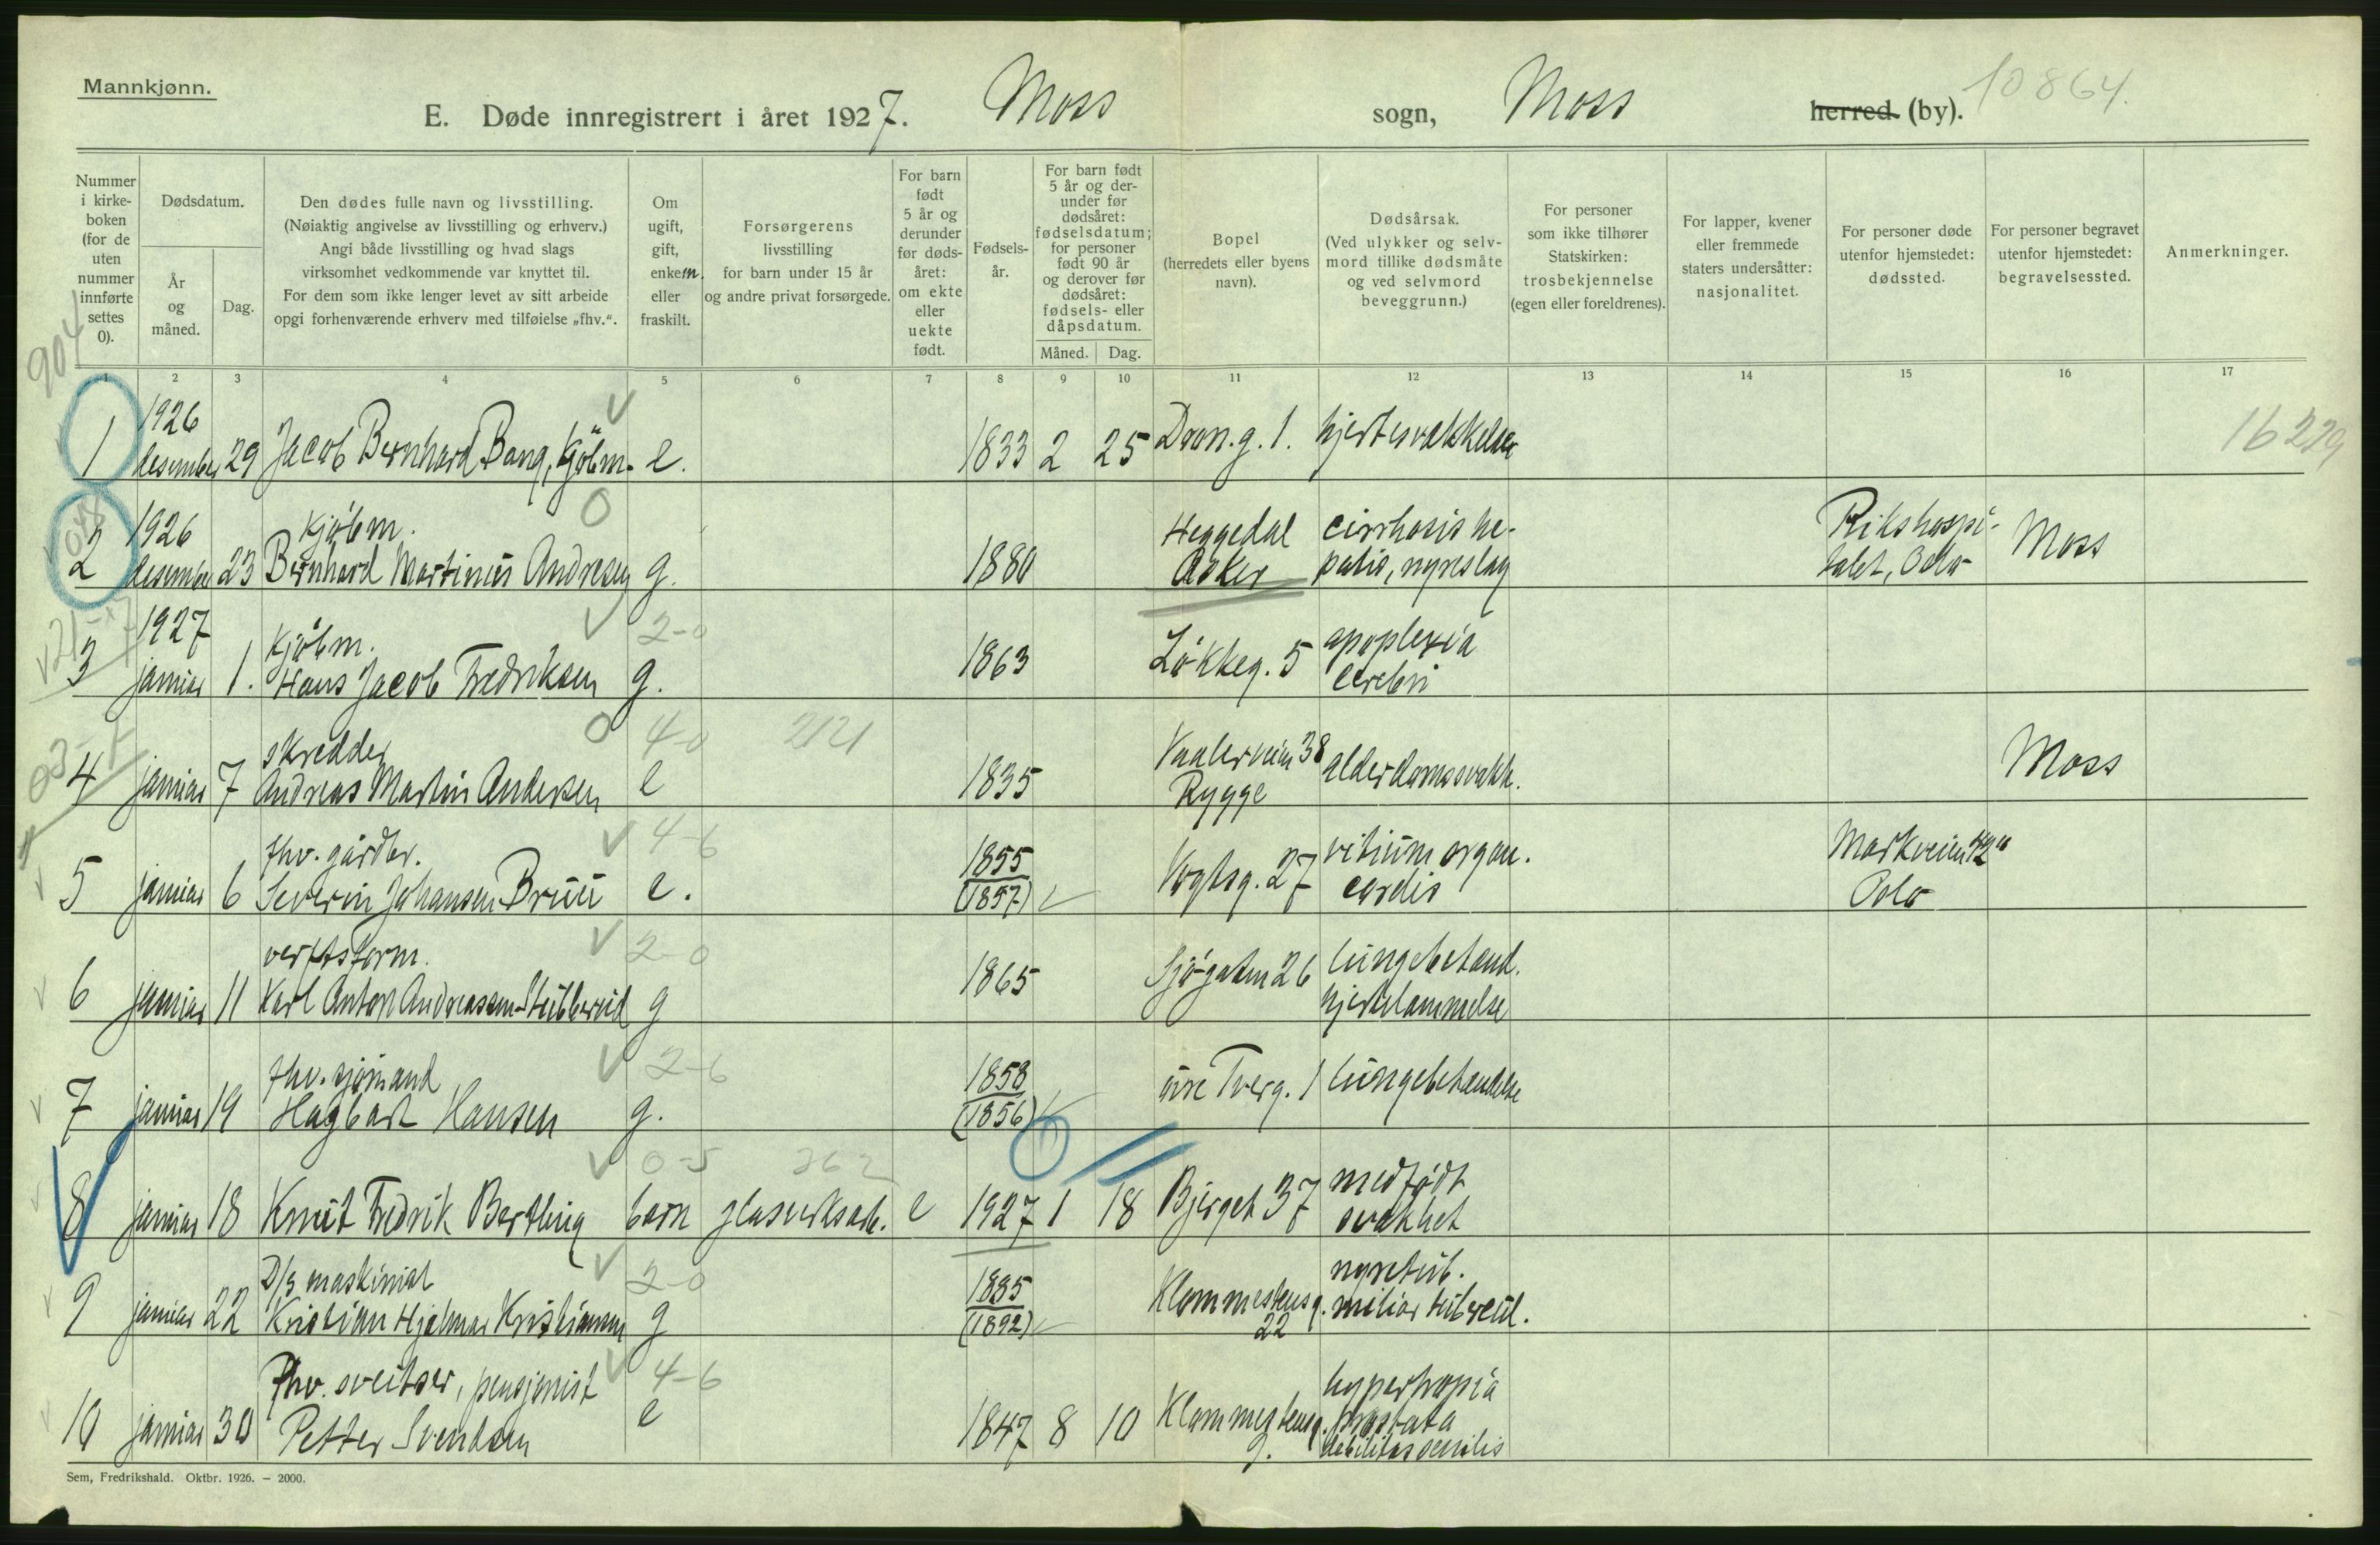 Mannkjønn.
E. Døde innregistrert i året 1927. Moss sogn, Moss herred (by). 10864.
Nummer i kirke-boken (for de uten nummer innførte settes 0).
Dødsdatum.
År og måned.
Dag.
Den dødes fulle navn og livsstilling.
(Nøiaktig angivelse av livsstilling og erhverv.)
Angi både livsstilling og hvad slags
virksomhet vedkommende var knyttet til.
For dem som ikke lenger levet av sitt arbeide
opgi forhenværende erhverv med tilføielse „fhv.“.
Om ugift, gift, enkem. eller fraskilt.
Forsørgerens
livsstilling
for barn under 15 år
og andre privat forsørgede.
For barn født 5 år og derunder før døds-året: om ekte eller uekte født.
Fødsels-år.
For barn født 5 år og der-under før dødsåret: fødselsdatum; for personer født 90 år og derover før dødsåret: fødsels- eller dåpsdatum.
Måned. Dag.
Bopel
(herredets eller byens
navn).
Dødsårsak.
(Ved ulykker og selv-
mord tillike dødsmåte
og ved selvmord
beveggrunn.)
For personer
som ikke tilhører
Statskirken:
trosbekjennelse
(egen eller foreldrenes).
For lapper, kvener
eller fremmede
staters undersåtter:
nasjonalitet.
For personer døde
utenfor hjemstedet:
dødssted.
For personer begravet
utenfor hjemstedet:
begravelsessted.
Anmerkninger.
904
1 2 3 4 5 6 7 8 9 10 11 12 13 14 15 16 17
1 1926 desember 29 Jacob Bernhard Bang, kjöbm. e. 1833 2 25 Dron.g. 1. hjertesvakkelse 16229
2 1926 desember 23 kjöbm. Bernhard Martinius Andresen g. 1880 Heggedal Asker cirrhosis he-patis, nyreslag Rikshospi-talet, Oslo Moss
3 1927 januar 1. kjöbm. Hans Jacob Fredriksen g. 2-0 1863 Lökkeg. 5 apoplexia cerebri
4 januar 7 skredder Andreas Martin Andersen e 4-0 2121 1835 Vaalerveien 38 Rygge alderdomssvakk. Moss
5 januar 6 fhv. gårdbr. Severin Johansen Bruu e. 4-6 1855 (1857) Vogtsg. 27 vitium organ. cordis Markveien 42" Oslo
6 januar 11 verftsform. Karl Anton Andreassen Stubberud g 2-0 1865 Sjögaten 26 lungebetend. hjertelammelse
7 januar 19 fhv. sjömand Hagbart Hansen g. 2-6 1858 (1856) övre Tverg. 1 lungebetendelse
8 januar 18 Knut Fredrik Bertling barn 0-5 262 glasverksarb. e 1927 1 18 Bjerget 37 medfödt svakhet
9 januar 22 D/s maskinist Kristian Hjalmar Kristiansen g 2-0 1885 (1892) Klommestensg. 22 nyretub. miliar tubercul.
10 januar 30 Fhv. sveitser, pensjonist Petter Svendsen e 4-6 1847 8 10 Klommestensg. 9. hypertropia prostata debilitas senilis
Sem, Fredrikshald. Oktbr. 1926. — 2000.